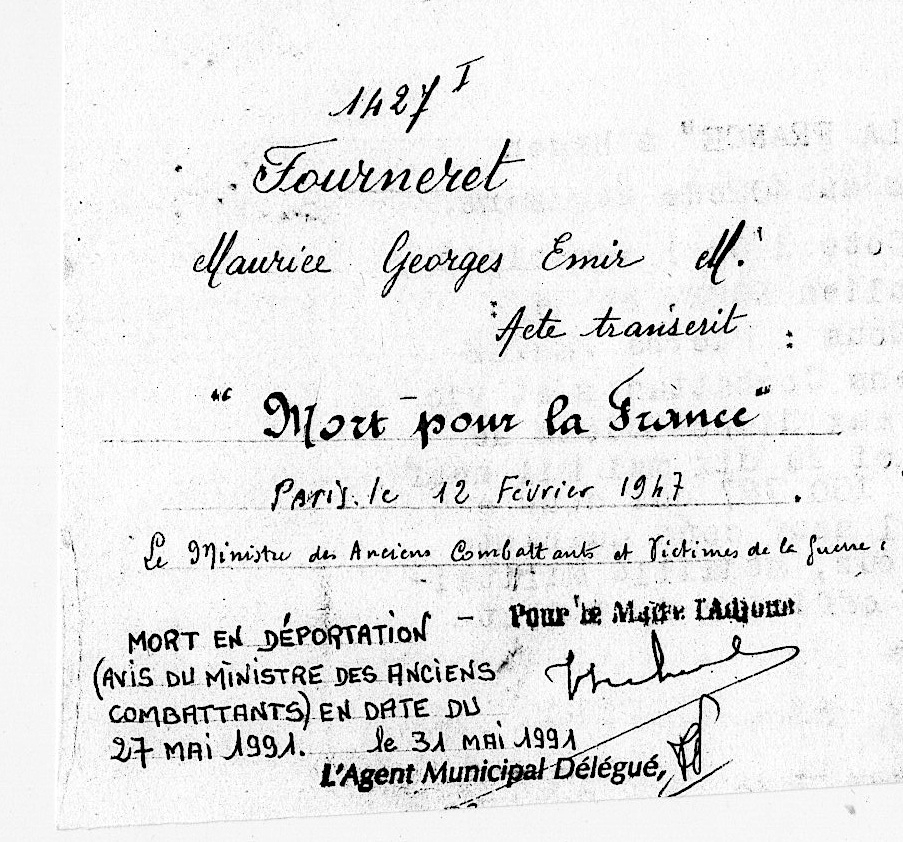 1427 I
Fourneret
Maurice Georges Emir M.
Acte transcrit :
"Mort pour la France"
Paris. le 12 Février 1947
Le Ministre des Anciens Combattants et Victimes de la Guerre :
MORT EN DÉPORTATION – Pour le Maire l'Adjoint
(AVIS DU MINISTRE DES ANCIENS
COMBATTANTS) EN DATE DU
27 MAI 1991. le 31 MAI 1991
L'Agent Municipal Délégué,